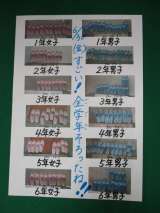 1年女子
2年女子
3年女子
4年女子
5年女子
6年女子
すごい!全学年そろったね!!
1年男子
2年男子
3年男子
4年男子
5年男子
6年男子